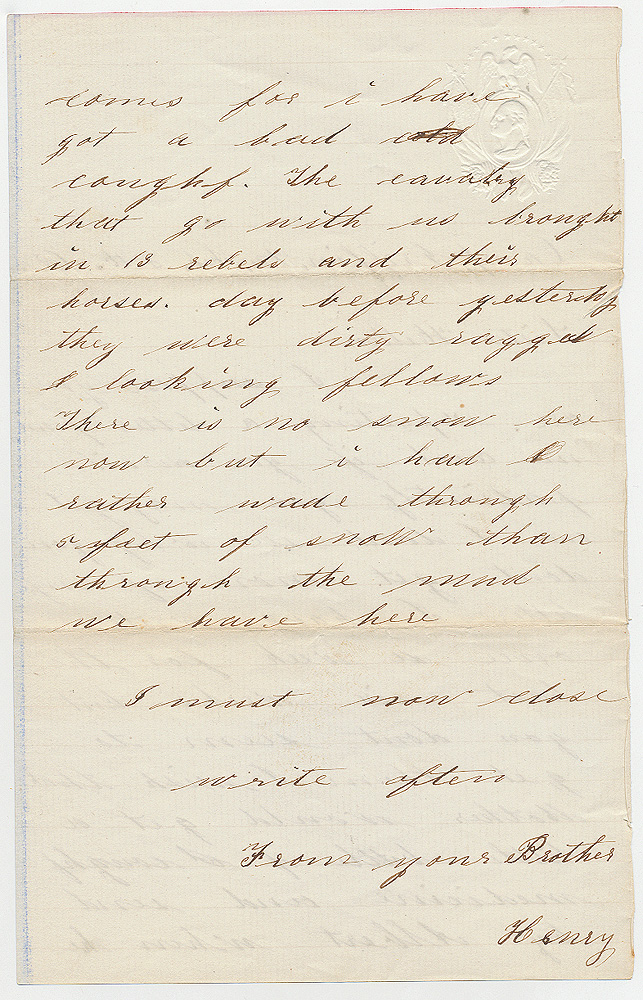 comes for i have
got a bad cold
coughf. The cavalry
that go with us brought
in 13 rebels and their
horses. day before yesterday
they were dirty ragged
& looking fellows
There is no snow here
now but i had
rather wade through
5 feet of snow than
through the mud
we have here
I must now close
write often
From your Brother
Henry